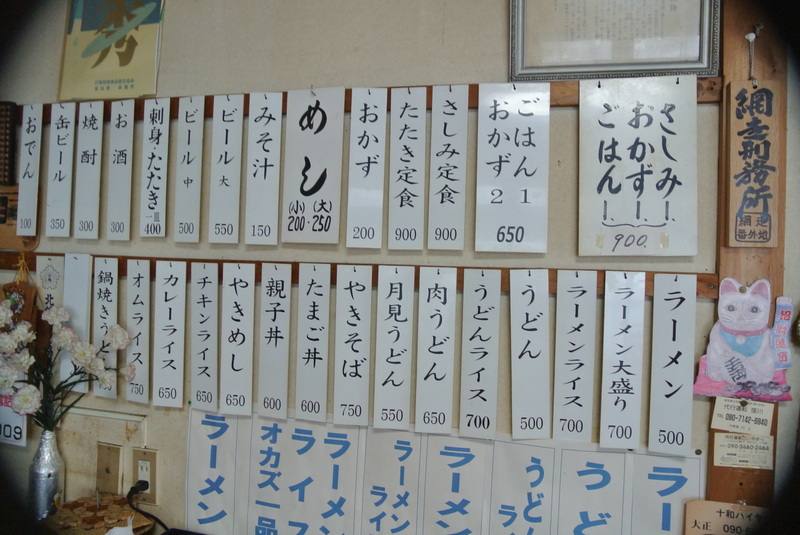 さしみ一、
おかず一、
ごはん一、
900.
ごはん 1
おかず 2
650
さしみ定食
900
たたき定食
900
おかず
200
めし
(大) (小)
250 200
みそ汁
150
ビール 大
550
ビール 中
500
刺身・たたき 一皿
400
お酒
300
焼酎
300
缶ビール
350
おでん
100
ラーメン
500
ラーメン大盛り
700
ラーメンライス
700
うどん
500
うどんライス
700
肉うどん
650
月見うどん
550
やきそば
750
たまご丼
600
親子丼
600
やきめし
650
チキンライス
650
カレーライス
650
オムライス
750
鍋焼きうどん
北
ラー
うど
うど
ラ
ラーメン
ラーメン
ライ
ラーメン
ライス
オカズ一品
ラーメン
網走刑務所
網走
番外地
招
代行運転
TEL 090-7142-8940
090-3460-2464
十和ハイヤ
大正 090-6
009
秀